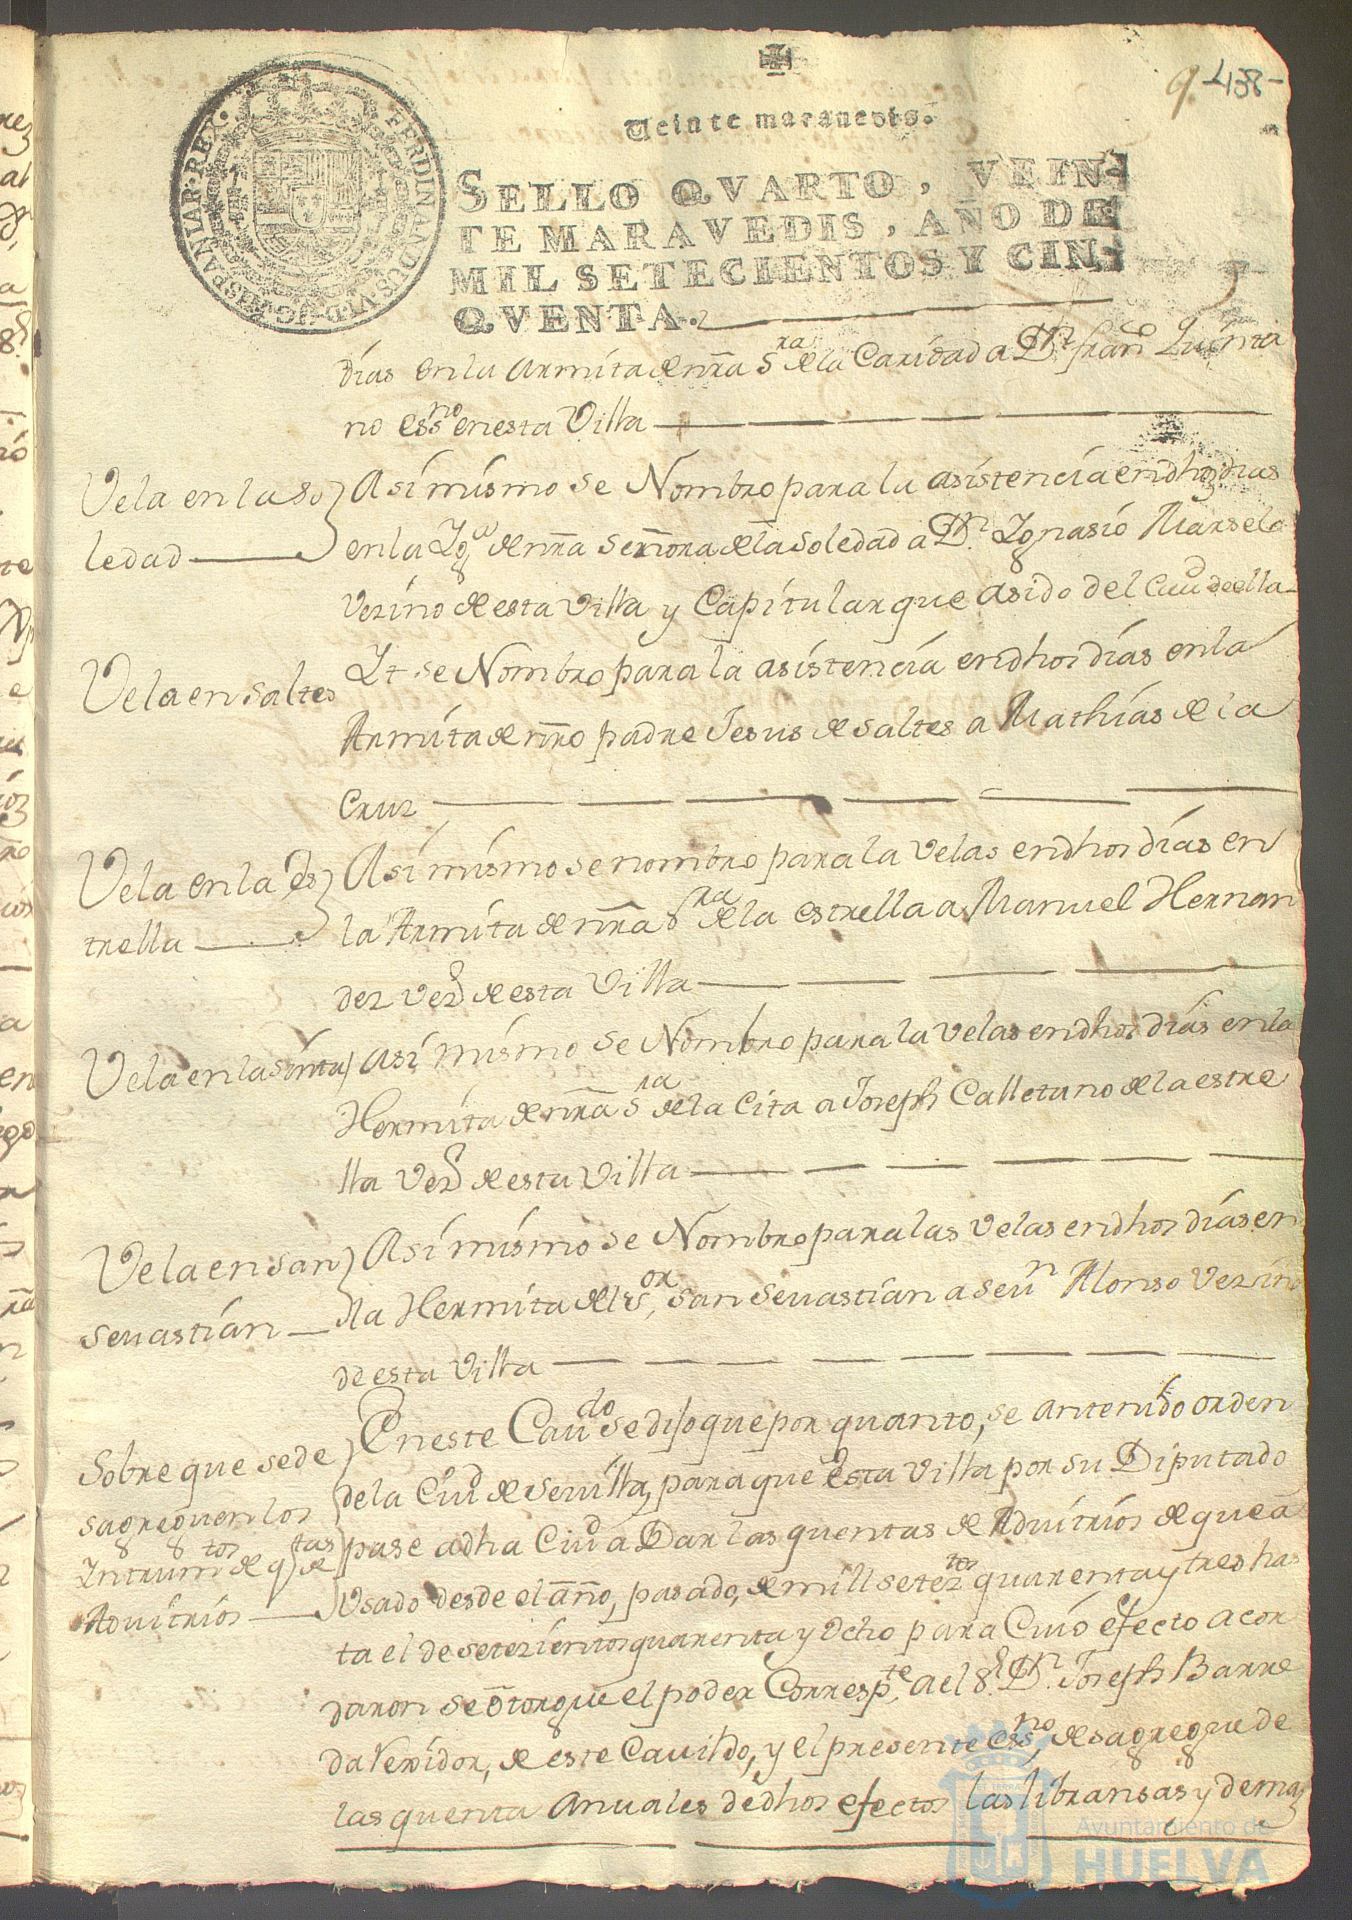 9 438
Veinte maravedis.
SELLO QVARTO, VEIN-
TE MARAVEDIS, AÑO DE
MIL SETECIENTOS Y CIN-
QVENTA.
FERDINANDUS·VI·D·G·HISPANIAR·REX·
dias en la armita de nrâ Sra de la Caridad a Dn franco Quinta
no essno en esta Villa
Vela en la so
ledad
Asi mismo se Nombro para la asistencia en dhos dias
en la Yga de nrâ señora de la Soledad a Dn Ygnasio Marselo
Vezino de esta Villa y Capitular que asido del Cauo de ella
Vela en saltes
Yt se Nombro para la asistencia en dhos dias en la
Armita de nrô padre Jesus de saltes a Mathias de la
Cruz
Vela en la es
trella
Asi mismo se nombro para la Velas en dhos dias en
la Armita de nrâ sra de la estrella a Manuel Hernan
dez Vezo de esta Villa
Vela en la sinta
Asi mismo se Nombro para la velas en dhos dias en la
Hermita de nrâ sra de la Cita a Joseph Calletano de la estre
lla Vezo de esta Villa
Vela en san
sevastian
Asi mismo se Nombro para las Velas en dhos dias en
la Hermita del sor san sevastian a seun Alonso Vezino
de esta Villa
Sobre que se de
sagreguen los
Yntrumtos de qtas de
Advitrios
En este Caudo se dijo que por quanto, se antenido orden
de la Ciud de sevilla, para que esta Villa por su Diputado
pase a dha Ciud a Dar las quentas de Advitrios de que a
Vsado desde el año, pasado, de mill seteztos quarenta y tres has
ta el de setezientos quarenta y Ocho para Cuio efecto acor
daron se otorgue el poder Correspte a el Sr Dn Joseph Barre
da Rexidor, de este Cavildo, y el presente essno, desagregue de
las quenta anuales de dhos efectos las libransas y demas
Ayuntamiento de
HUELVA